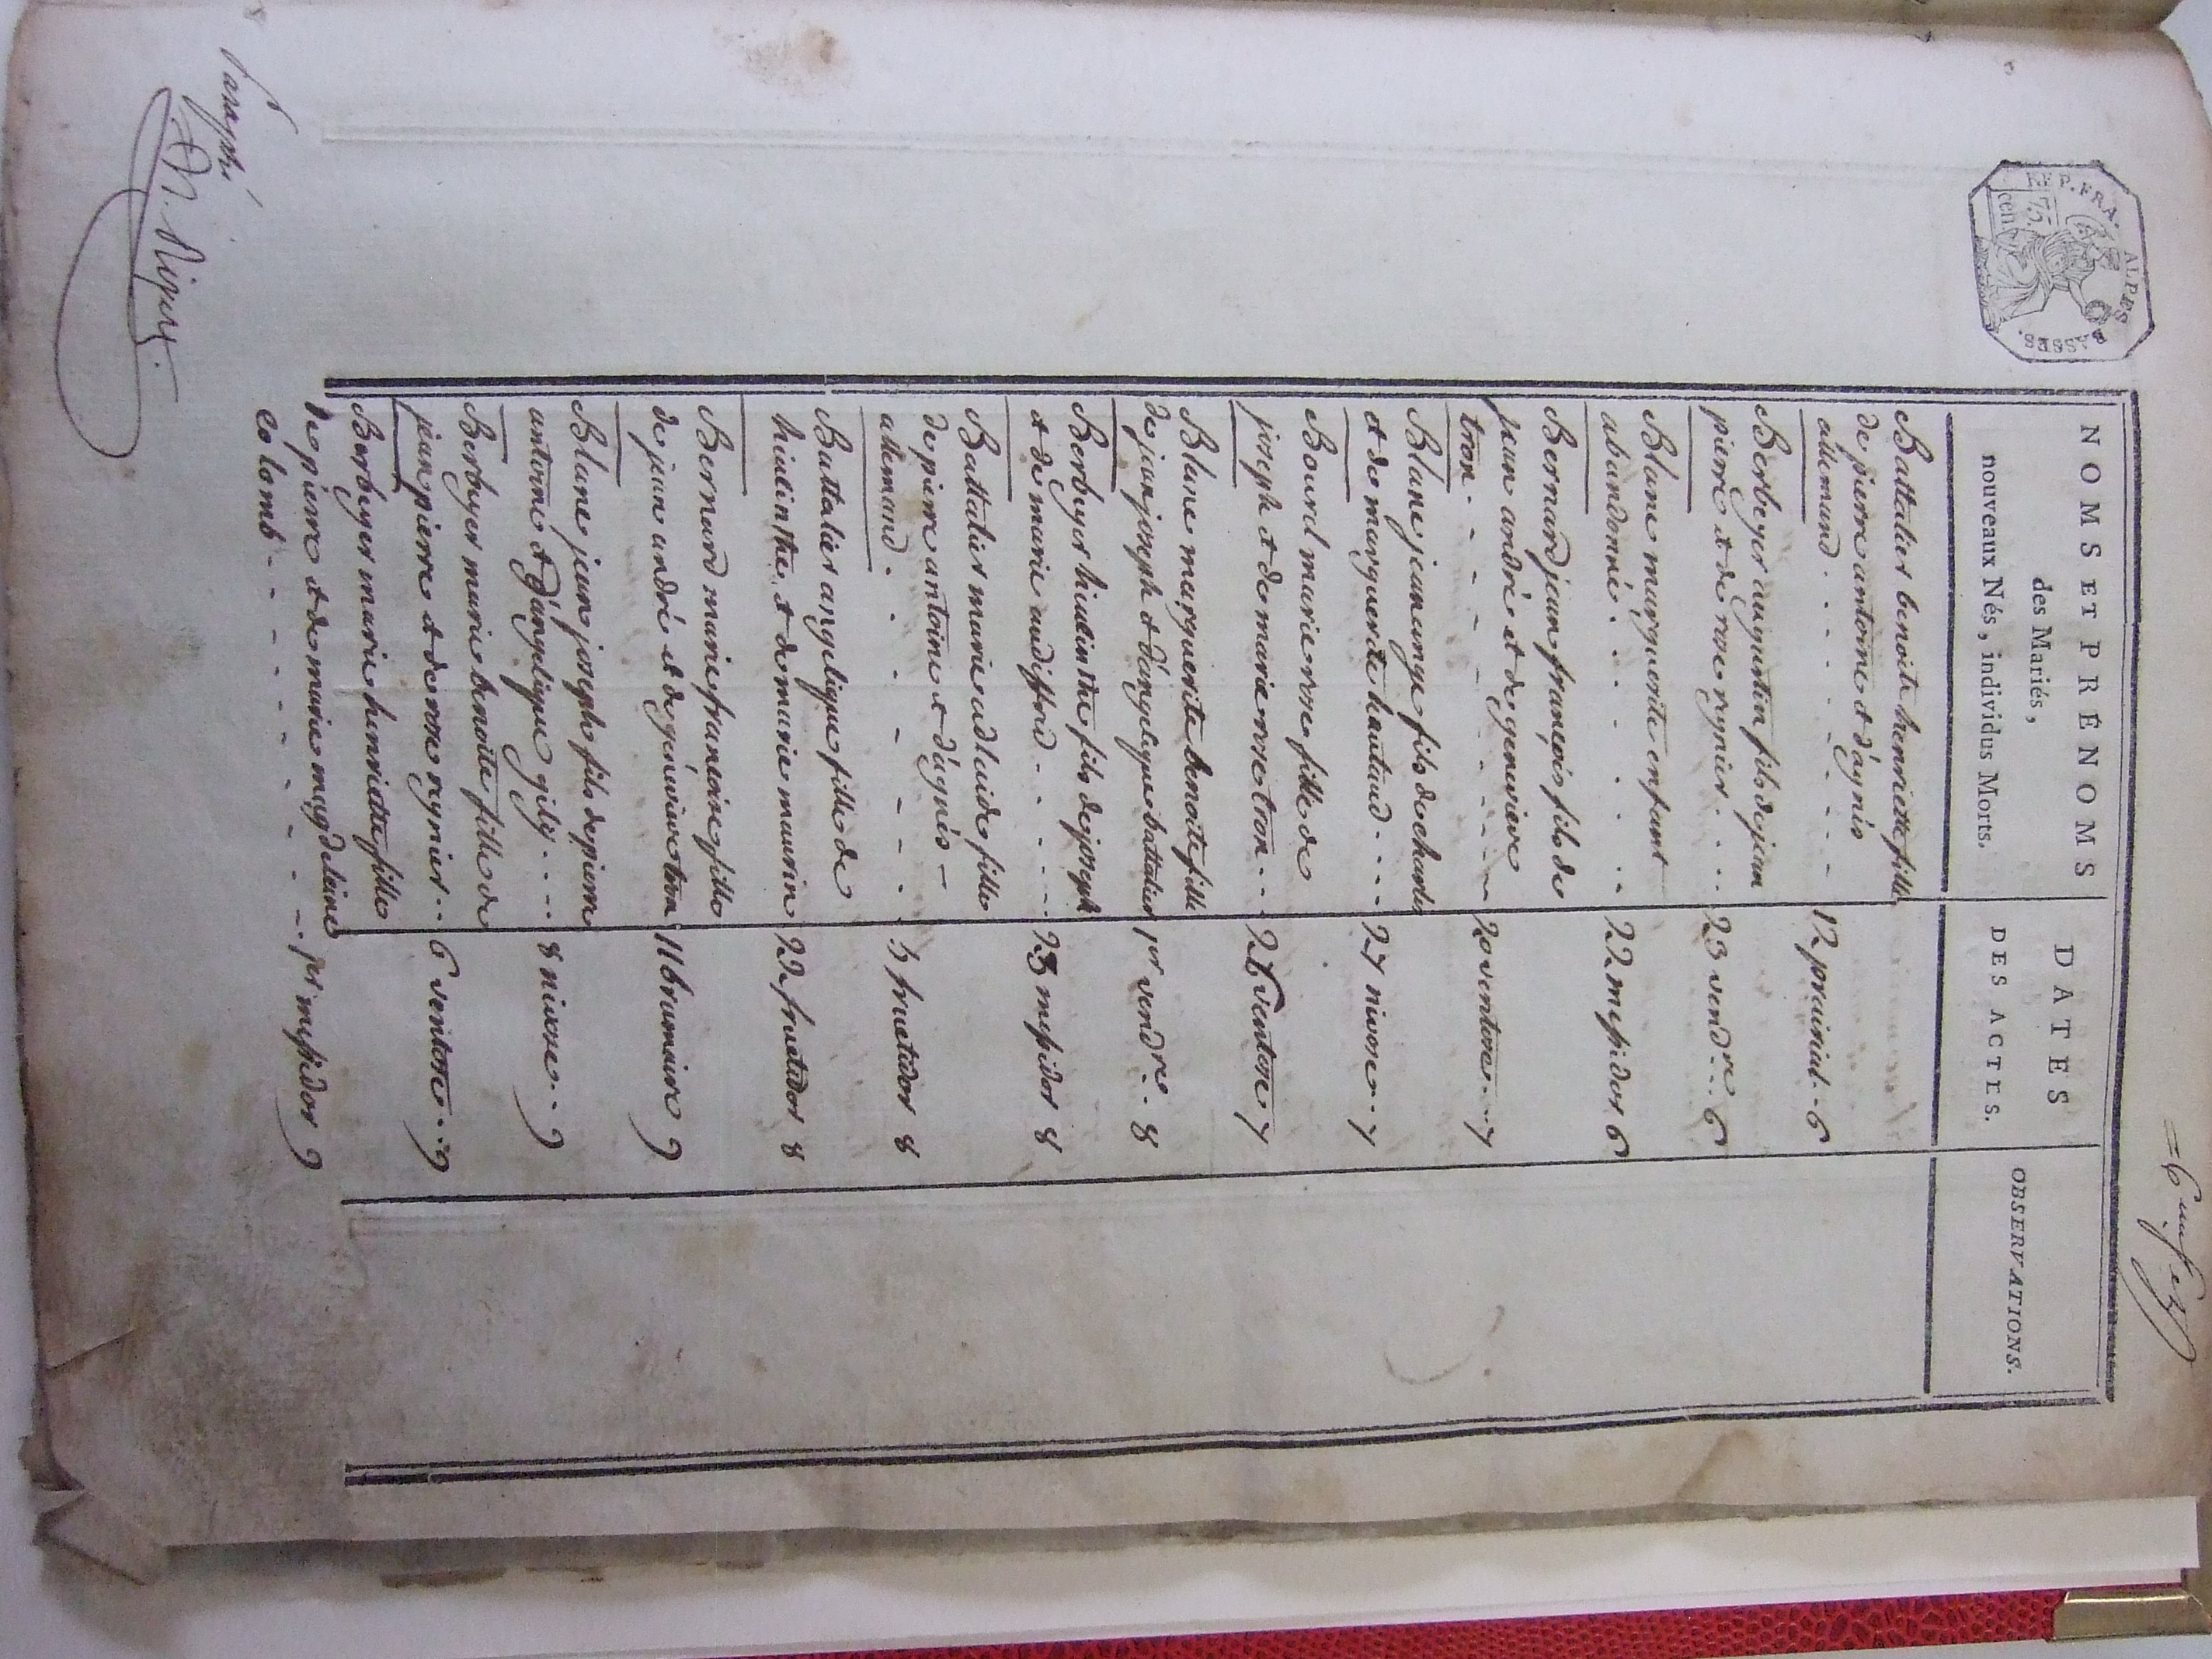 = 6 
REP. FRA. ALPES BASSES.
75 cen
NOMS ET PRÉNOMS
des Mariés,
nouveaux Nés, individus Morts.
DATES
DES ACTES.
OBSERVATIONS.
Battalier benoite henriette fille
de pierre antoine et d'agnis
allemand . . . . . . 12 prairial . . 6
Berbeyer augustin fils de jean
pierre et de rose reynier . . . . 23 vend.re . . 6
Blanc marguerite enfant
abandonné . . . . . . . 22 messidor 6
Bernard jean françois fils de
jean andré et de genevieve
tron . - - - - - - 20 ventose . . 7
Blanc jean ange fils de charles
et de marguerite hautaud . . . . 27 nivose . . 7
Bourel marie rose fille de
joseph et de marie rose tron . . . 26 ventose 7
Blanc marguerite benoite fille
de jean joseph et d'angelique battalier 1er vend.re . . 8
Berbeyer hiacinthe fils de joseph
et de marie audiffred . . . . . 23 messidor 8
Battalier marie adelaide fille
de pierre antoine et d'agnés -
allemand . . . - - - . . 5 fructidor 8
Battalier angelique fille de
hiacinthe, et de marie maurin 22 fructidor 8
Bernard marie francoise fille
de jean andré et de genevieve tron 11 brumaire 9
Blanc jean joseph fils de pierre
antoine et d'angelique gily . . . . 8 nivose . . 9
Berbeyer marie benoite fille de
jean pierre et de rose reynier . . 6 ventose . . . 9
Berbeyer marie henriette fille
de pierre et de marie magdeleine
colomb - - - - - - - - . . 1er messidor 9
Paraphé